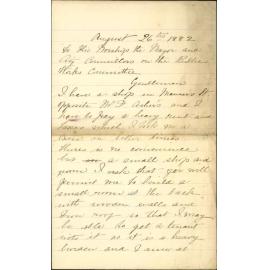 August 26th 1882
To His Worship the Mayor and
City Councillors on the Public
Works Committee
Gentlemen
I have a shop in Main St
opposite Mr and I
have to pay a heavy rent and
taxes which I
There is no convenience
but a small shop and
room I ask that you will
permit me to build a
small room at the back
with wooden walls and
Iron roof so that I may
be able to get a tenant
into it as it is a heavy
burden and I now at